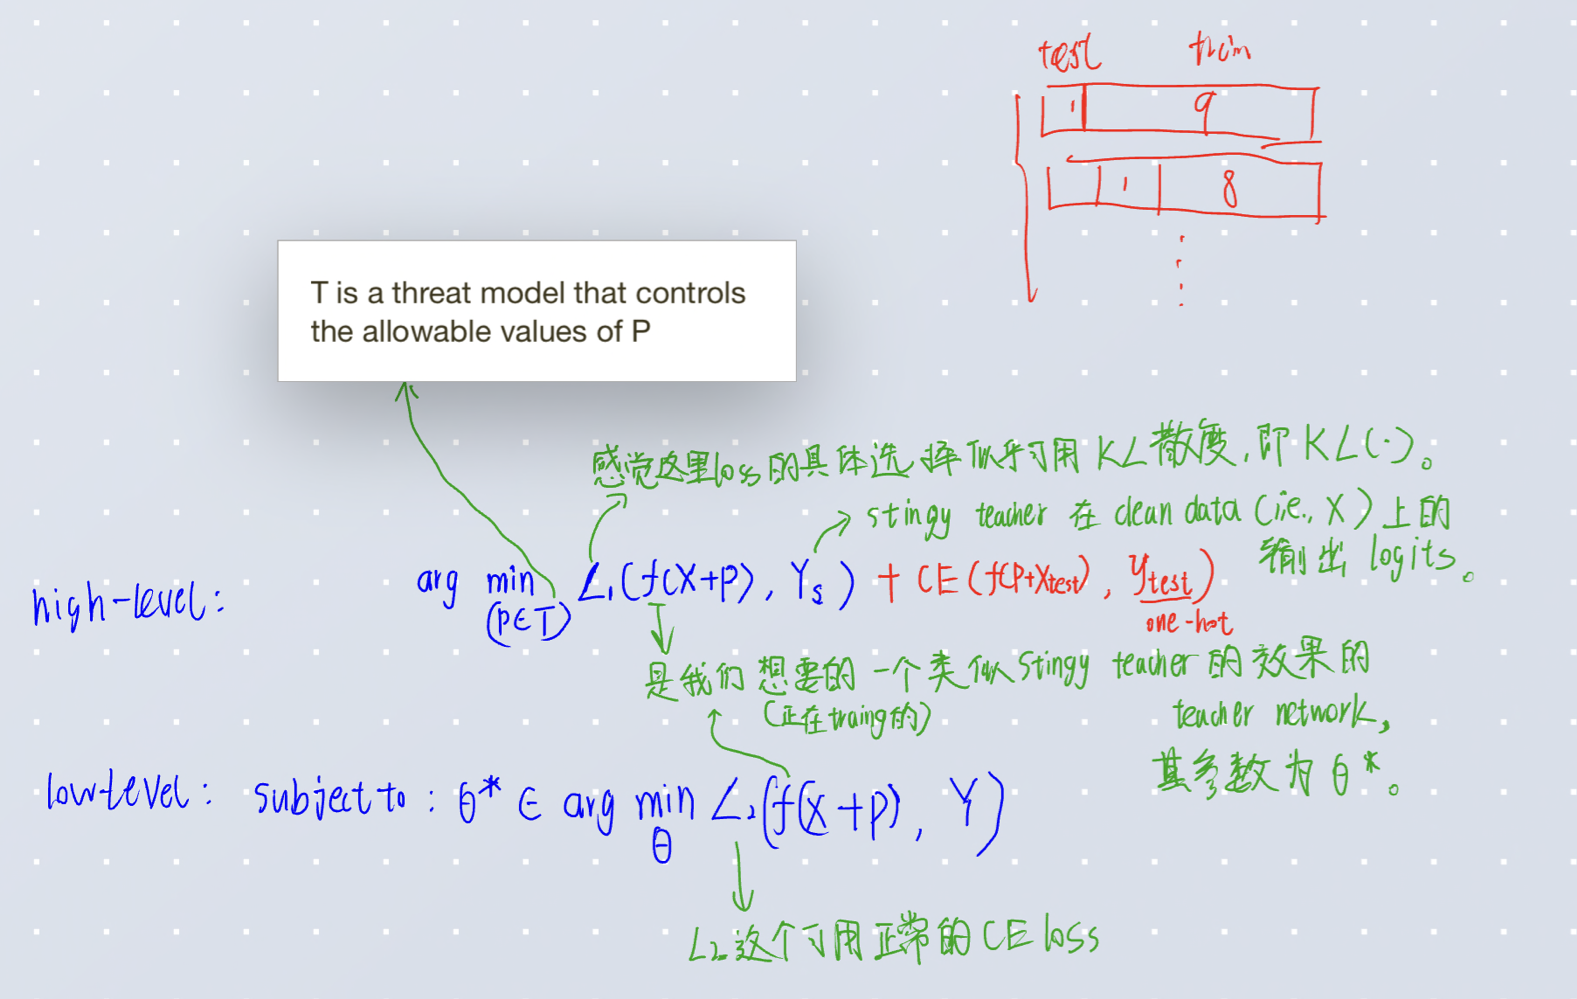 test train
1 9
1 8
T is a threat model that controls
the allowable values of P
感觉这里loss的具体选择似乎可用 KL 散度,即 KL(·)。
stingy teacher 在 clean data (i.e., X) 上的
输出 logits。
high-level: arg min (P∈T) L₁(f(X+P), Yₛ) + CE(f(P+Xtest), ytest)
one-hot
是我们想要的一个类似 Stingy teacher 的效果的
(正在traing的)
teacher network,
其参数为 θ*。
low-level: subject to: θ* ∈ arg min θ L₂(f(X+P), Y)
L₂这个可用正常的 CE loss